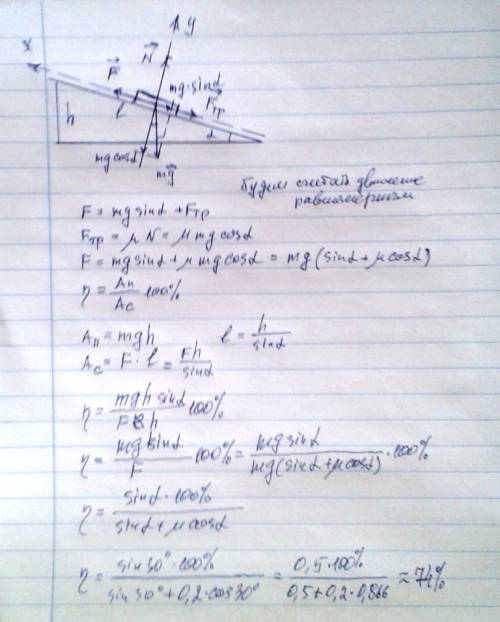 y
x
N
F
mg·sinα
Fтр
l
h
α
mg cosα
mg
будем считать движение
равномерным
F = mg sinα + Fтр
Fтр = μN = μ mg cosα
F = mg sinα + μ mg cosα = mg (sinα + μ cosα)
η = Aп/Aс 100%
Aп = mgh l = h/sinα
Aс = F · l = Fh/sinα
η = mgh sinα/F h 100%
η = mg sinα/F 100% = mg sinα/mg(sinα + μ cosα) · 100%
η = sinα · 100%/sinα + μ cosα
η = sin 30° · 100%/sin 30° + 0,2 · cos 30° = 0,5 · 100%/0,5 + 0,2 · 0,866 ≈ 74%